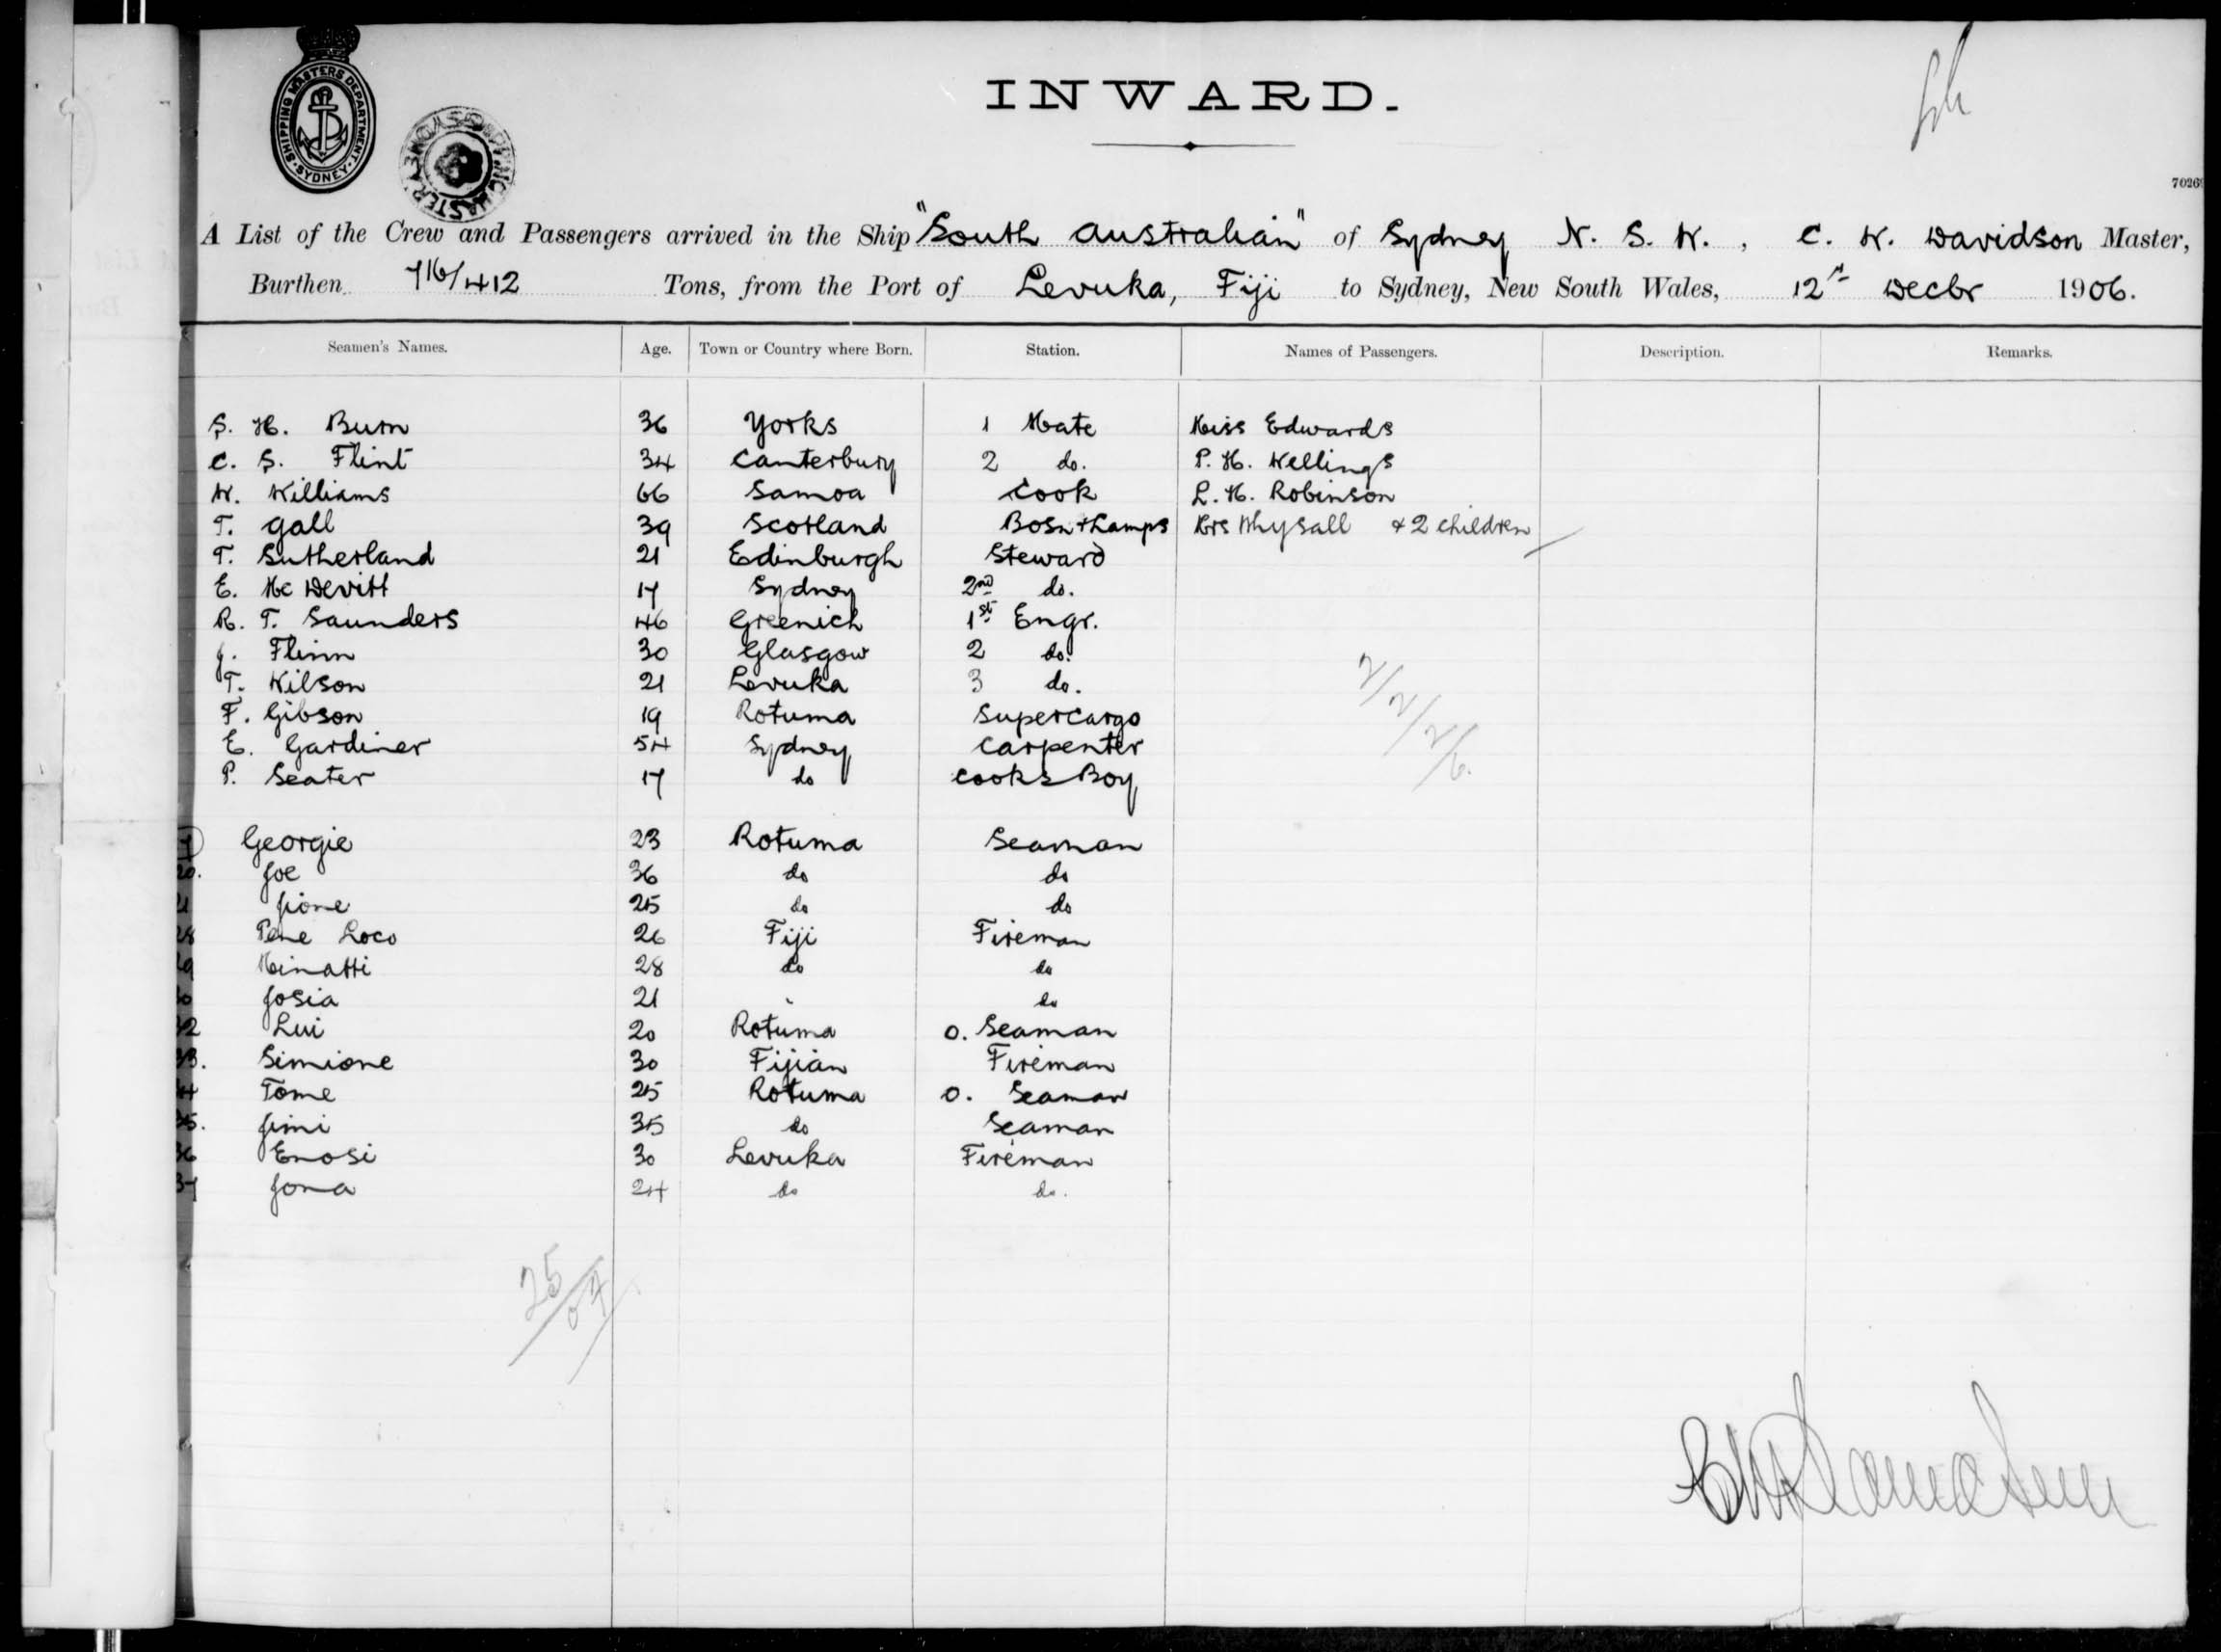 SHIPPING MASTERS DEPARTMENT. SYDNEY.
INWARD.
7026
A List of the Crew and Passengers arrived in the Ship "South Australian" of Sydney N. S. W., C. W. Davidson Master,
Burthen 716/412 Tons, from the Port of Levuka, Fiji to Sydney, New South Wales, 12th Decbr 1906.
Seamen's Names. Age. Town or Country where Born. Station. Names of Passengers. Description. Remarks.
S. H. Burn 36 Yorks 1 Mate Miss Edwards
C. S. Flint 34 Canterbury 2 do. P. H. Wellings
W. Williams 66 Samoa Cook L. H. Robinson
T. Gall 39 Scotland Bosn & Lamps Mrs Whysall & 2 children
T. Sutherland 21 Edinburgh Steward
E. Mc Devitt 17 Sydney 2nd do.
R. T. Saunders 46 Greenich 1st Engr.
J. Flinn 30 Glasgow 2 do.
T. Wilson 21 Levuka 3 do.
F. Gibson 19 Rotuma Supercargo
E. Gardiner 54 Sydney Carpenter
P. Seater 17 do Cooks Boy
2/2/2/6.
Georgie 23 Rotuma Seaman
20. Joe 36 do do
21 Jione 25 do do
28 Pene Loco 26 Fiji Fireman
29 Minatti 28 do do
30 Josia 21 " do
32 Lui 20 Rotuma O. Seaman
33. Simione 30 Fijian Fireman
34 Tome 25 Rotuma O. Seaman
35. Jimi 35 do Seaman
36 Enosi 30 Levuka Fireman
37 Jona 24 do do.
25/07